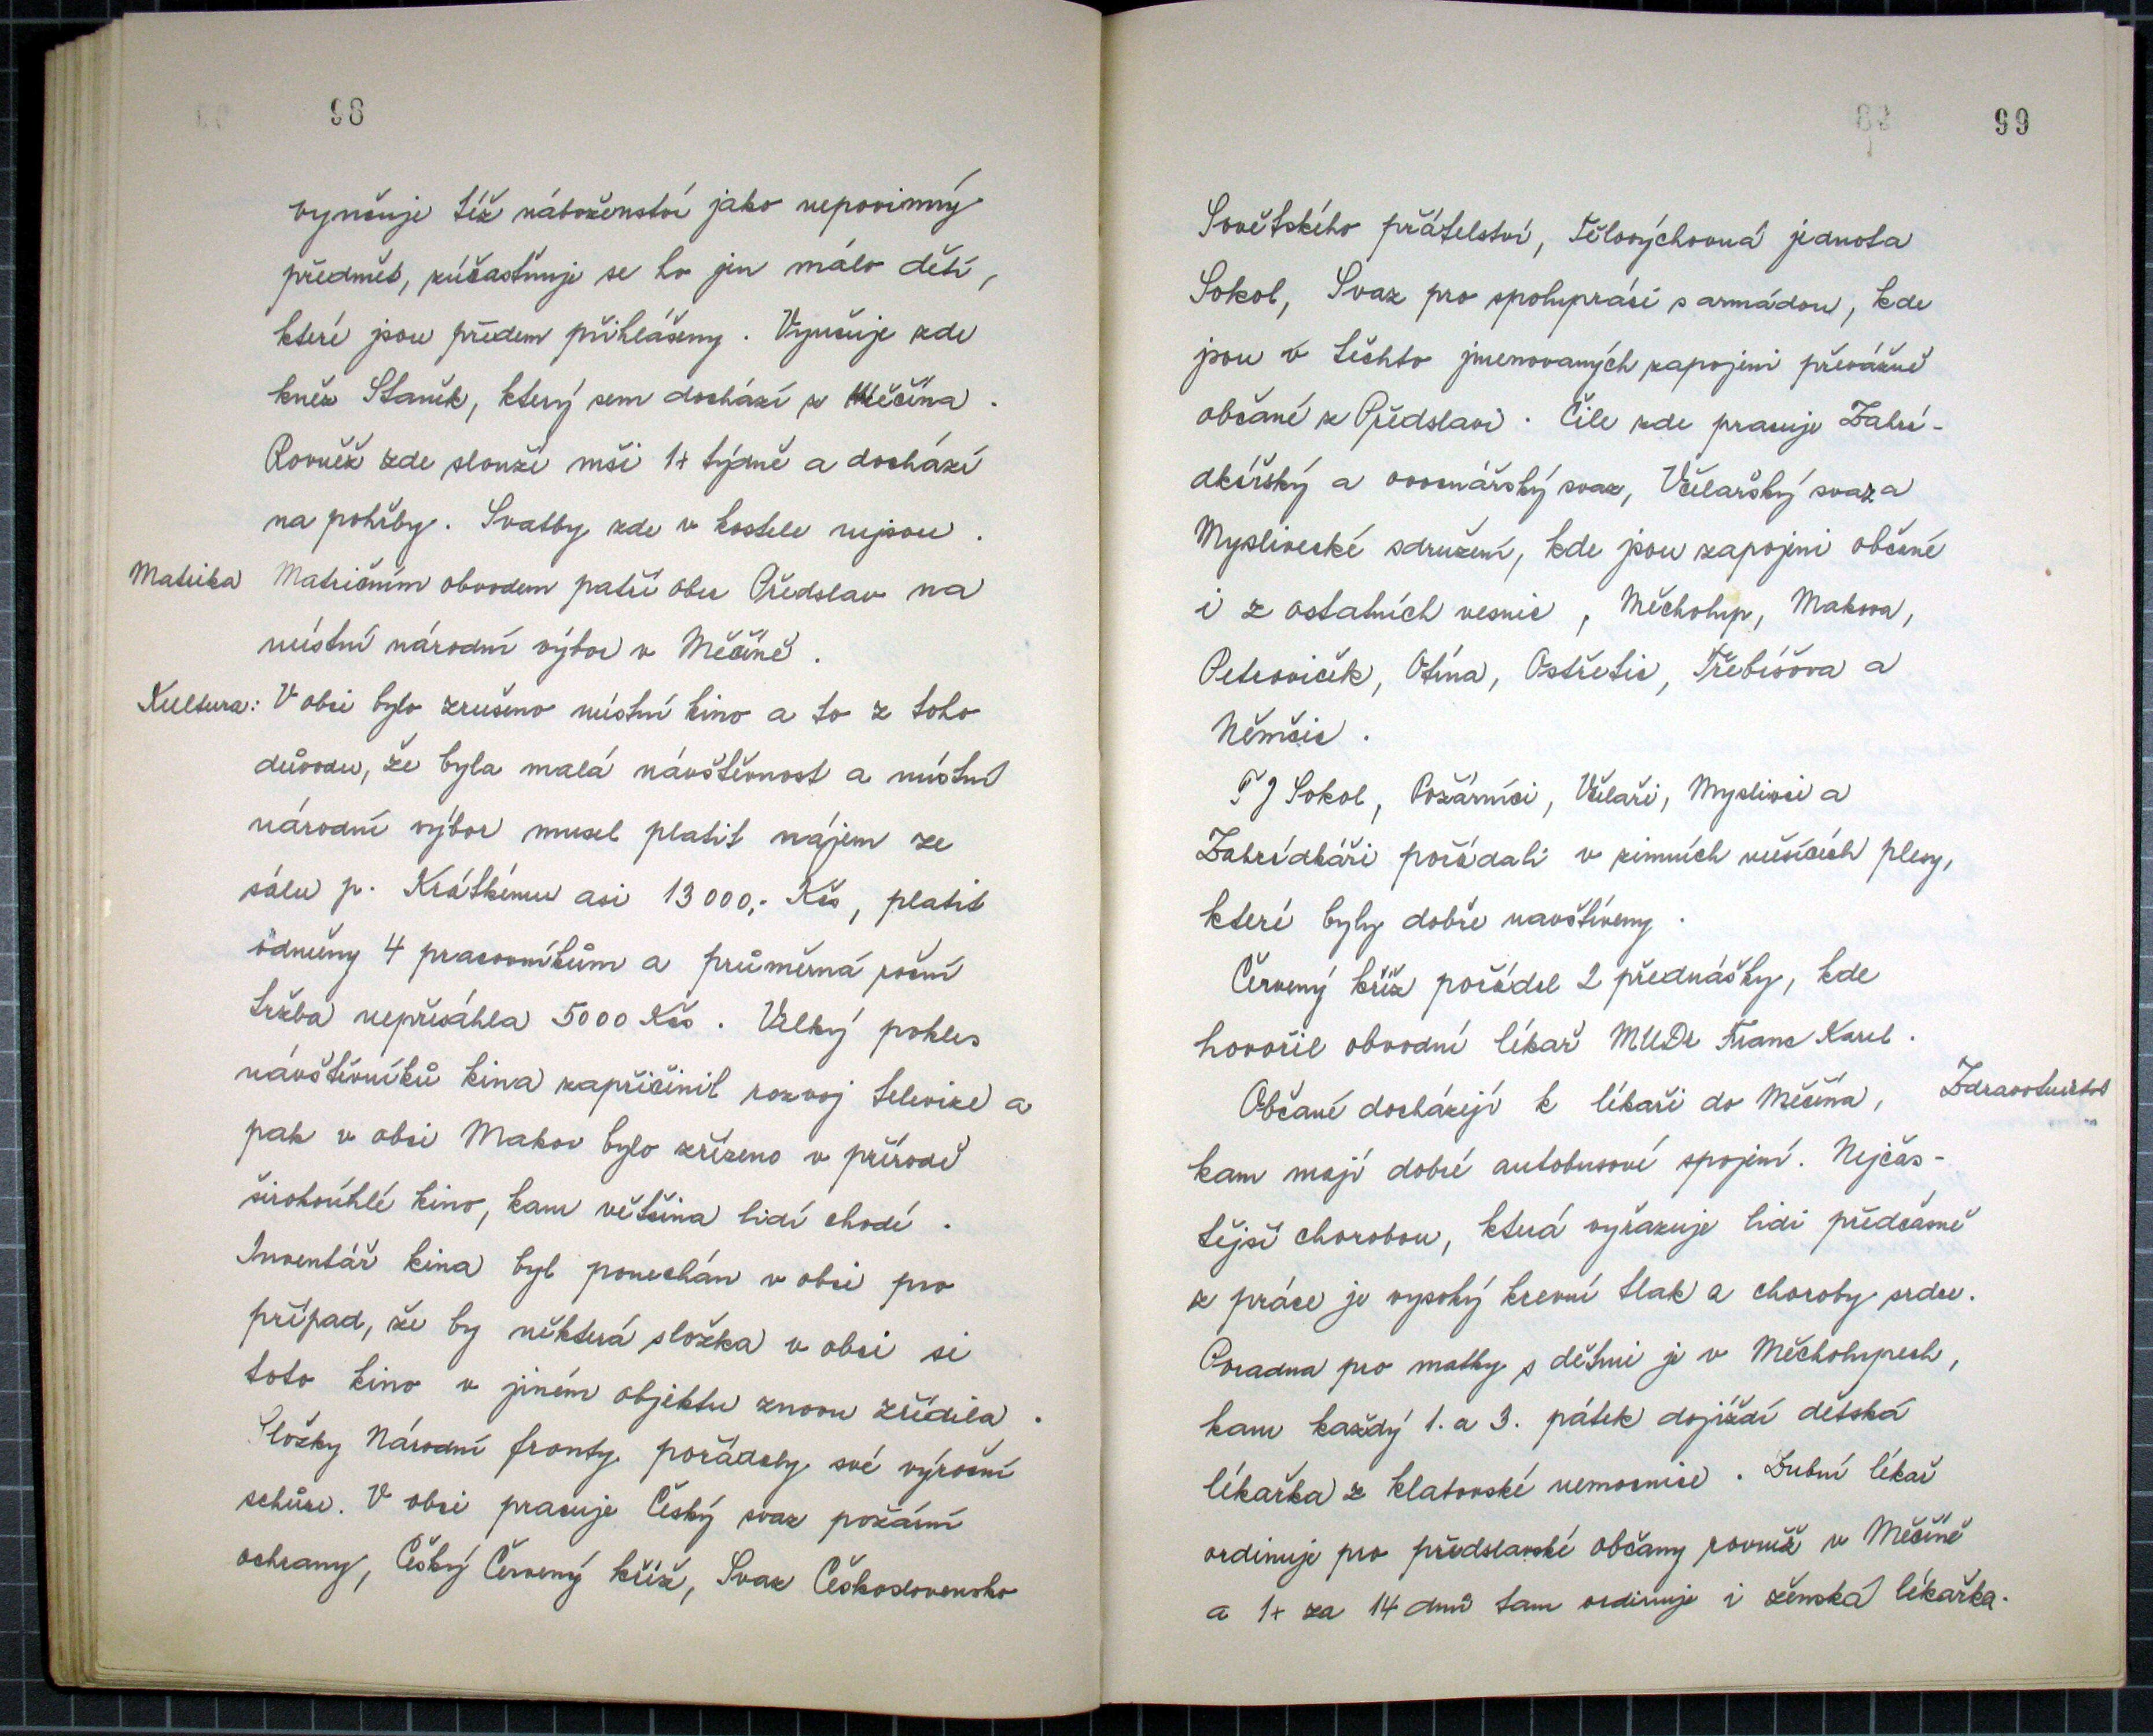 98
vyučuje též náboženství jako nepovinný
předmět, zúčastňuje se ho jen málo dětí,
které jsou předem přihlášeny. Vyučuje zde
kněz Staněk, který sem dochází z Měčína.
Rovněž zde slouží mši 1x týdně a dochází
na pohřby. Svatby zde v kostele nejsou.
Matrika Matričním obvodem patří obec Předslav na
místní národní výbor v Měčíně.
Kultura: V obci bylo zrušeno místní kino a to z toho
důvodu, že byla malá návštěvnost a místní
národní výbor musel platit nájem ze
sálu p. Krátkému asi 13 000,- Kčs, platit
odměny 4 pracovníkům a průměrná roční
tržba nepřesáhla 5000 Kčs. Velký pokles
návštěvníků kina zapříčinil rozvoj televize a
pak v obci Makov bylo zřízeno v přírodě
širokoúhlé kino, kam většina lidí chodí.
Inventář kina byl ponechán v obci pro
případ, že by některá složka v obci si
toto kino v jiném objektu znovu zřídila.
Složky Národní fronty pořádaly své výroční
schůze. V obci pracuje Český svaz požární
ochrany, Český Červený kříž, Svaz Československo
99
Sovětského přátelství, Tělovýchovná jednota
Sokol, Svaz pro spolupráci s armádou, kde
jsou v těchto jmenovaných zapojeni převážně
občané z Předslavi. Čile zde pracuje Zahrá-
dkářský a ovocnářský svaz, Včelařský svaz a
Myslivecké sdružení, kde jsou zapojeni občané
i z ostatních vesnic, Měcholup, Makova,
Petroviček, Otína, Ostřetic, Třebíšova a
Němčic.
TJ Sokol, Požárníci, Včelaři, Myslivci a
Zahrádkáři pořádali v zimních měsících plesy,
které byly dobře navštíveny.
Červený kříž pořádal 2 přednášky, kde
hovořil obvodní lékař MUDr Franc Karel.
Občané docházejí k lékaři do Měčína, Zdravotnictví
kam mají dobré autobusové spojení. Nejčas-
tější chorobou, která vyřazuje lidi předčasně
z práce je vysoký krevní tlak a choroby srdce.
Poradna pro matky s dětmi je v Měcholupech,
kam každý 1. a 3. pátek dojíždí dětská
lékařka z klatovské nemocnice. Zubní lékař
ordinuje pro předslavské občany rovněž v Měčíně
a 1x za 14 dnů tam ordinuje i ženská lékařka.